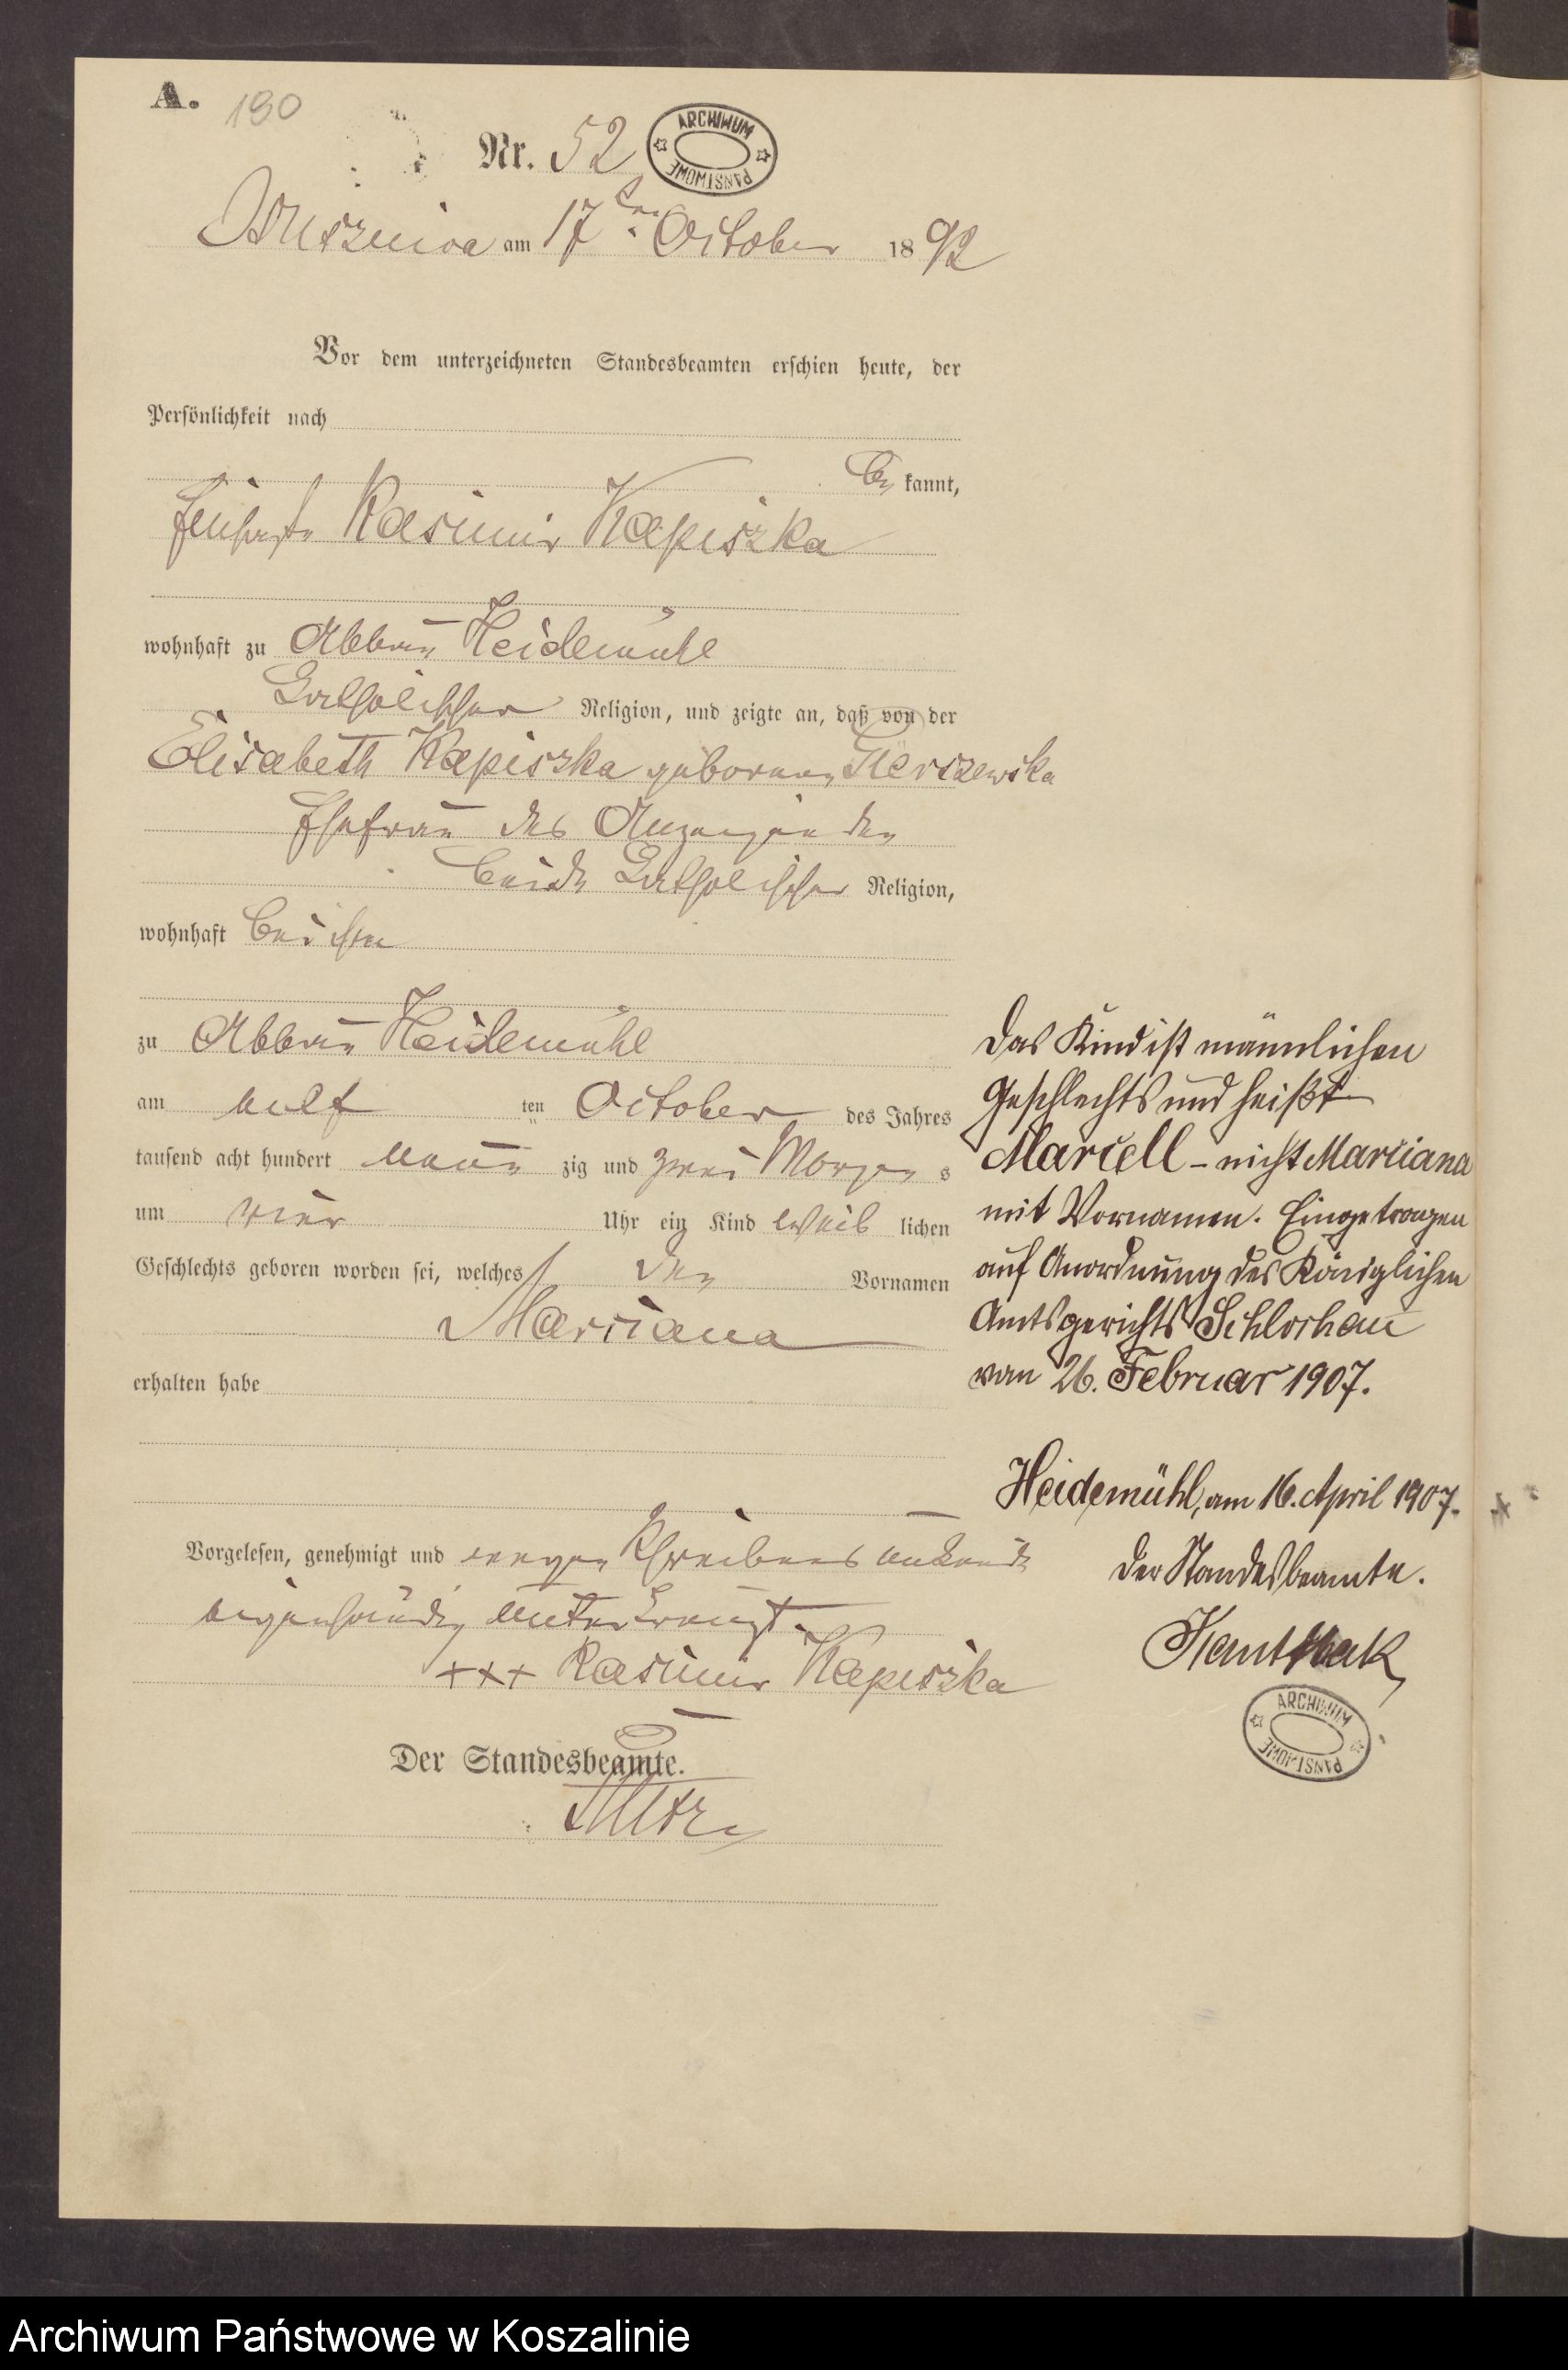 A. 190
Nr. 52
ARCHIWUM PAŃSTWOWE
am 17ten October 1892
Vor dem unterzeichneten Standesbeamten erschien heute, der
Persönlichkeit nach
be kannt,
Kasimir Kapiszka
wohnhaft zu Abbau Heidemühl
katholischer Religion, und zeigte an, daß von der
Elisabeth Kapiszka geborenen
Ehefrau des Anzeigenden
beide katholischer Religion,
wohnhaft bei ihm
zu Abbau Heidemühl
am elf ten October des Jahres
tausend acht hundert neun zig und zwei Morgen s
um vier Uhr ein Kind weib lichen
Geschlechts geboren worden sei, welches den Vornamen
Marciana
erhalten habe
Vorgelesen, genehmigt und wegen Schreibens unkunde
eigenhändig unterkreuzt.
+++ Kasimir Kapiszka
Der Standesbeamte.
Das Kind ist männlichen
Geschlechts und heißt
Marcell - nicht Marciana
mit Vornamen. Eingetragen
auf Anordnung des Königlichen
Amtsgerichts Schlochau
vom 26. Februar 1907.
Heidemühl, am 16. April 1907.
Der Standesbeamte.
ARCHIWUM PAŃSTWOWE
Archiwum Państwowe w Koszalinie